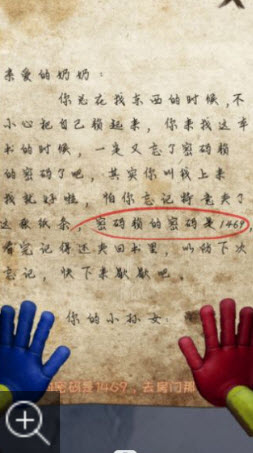 亲爱的奶奶：
你总在找东西的时候，不
小心把自己锁起来，你来找这本
书的时候，一定又忘了密码锁
的密码了吧，其实你叫我上来
找就好啦，怕你忘记特意夹了
这张纸条，密码锁的密码是1469
看完记得还夹回书里，以防下次
忘记，快下来歇歇吧。
你的小孙女
密码是1469，去房门那